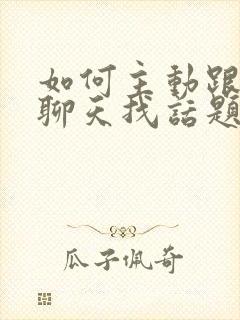 如何主動跟
聊天找話題
瓜子佩奇